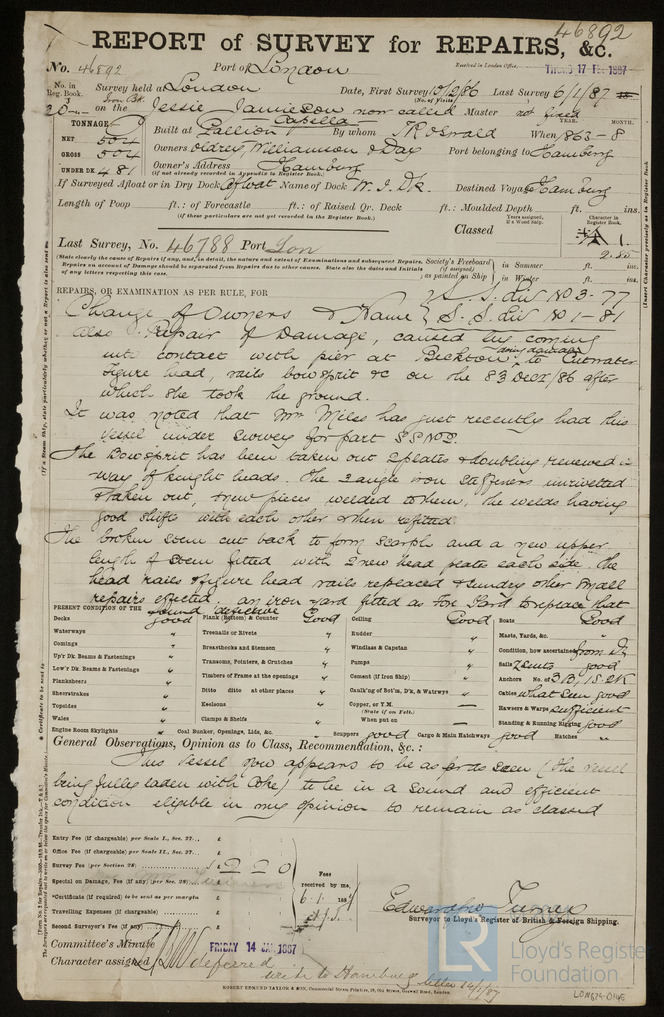 46892
REPORT of SURVEY for REPAIRS, &c.
No. 46892 Port of London Received in London Office, THURS 17 FEB 1887
No. in Reg. Book. Survey held at London Date, First Survey 10/2/86 Last Survey 6/1/87
on the Iron Bk. Jessie Jamieson now called Capella (No. of Visits) Master not fixed
TONNAGE Built at Pallion By whom T R Oswald When 1863-8 YEAR. MONTH.
NET 504 Owners Williamson & Day Port belonging to Hamburg
GROSS 504 Owner's Address Hamburg
(if not already recorded in Appendix to Register Book.)
UNDER DK. 481
If Surveyed Afloat or in Dry Dock Afloat Name of Dock W. I. Dk. Destined Voyage Hamburg
Length of Poop ft.: of Forecastle ft.: of Raised Qr. Deck ft.: Moulded Depth ft. ins.
(if these particulars are not yet recorded in the Register Book.)
Years assigned, if a Wood Ship. Character in Register Book.
Classed A 1.
Last Survey, No. 46788 Port Lon
(State clearly the cause of Repairs if any, and, in detail, the nature and extent of Examinations and subsequent Repairs.
Repairs on account of Damage should be separated from Repairs due to other causes. State also the dates and Initials
of any letters respecting this case.
Society's Freeboard (if assigned) as painted on Ship in Summer ft. in.
in Winter ft. in.
REPAIRS, OR EXAMINATION AS PER RULE, FOR S. S. div No 3-77
Change of Owners & Name S. S. div No 1-81
also Repair of Damage, caused by coming
into contact with pier at Beckton doing damage to Cutwater
figure head, rails bowsprit &c on the Decr /86 after
which she took the ground.
It was noted that Mr Miles has just recently had this
vessel under survey for part S S No 2.
The Bowsprit has been taken out 2 plates & doubling renewed in
way of knight heads. The 2 angle iron stiffeners unrivetted
& taken out, & new pieces welded to them, the welds having
good shifts with each other & then refitted
The broken stem cut back to form scarph and a new upper
length of stem fitted with 2 new head plates each side. The
head rails & figure head rails replaced & sundry other small
repairs effected. an iron yard fitted as Fore Yard to replace that
found defective
PRESENT CONDITION OF THE
Decks good Plank (Bottom) & Counter Good Ceiling Good Boats Good
Waterways " Treenails or Rivets " Rudder " Masts, Yards, &c. "
Comings " Breasthooks and Stemson " Windlass & Capstan " Condition, how ascertained from Dk
Up'r Dk. Beams & Fastenings " Transoms, Pointers, & Crutches " Pumps " Sails 2 suits good
Low'r Dk. Beams & Fastenings " Timbers of Frame at the openings " Cement (if Iron Ship) " Anchors No. of 3 B, 1 S. 2 K
Planksheers " Ditto ditto at other places " Caulk'ng of Bot'm, D'k, & Watrwys " Cables what seen good
Sheerstrakes " Keelsons " Copper, or Y.M. — Hawsers & Warps sufficient
(State if on Felt.)
Topsides " Clamps & Shelfs " When put on — Standing & Running Rigging good
Wales "
Engine Room Skylights " Coal Bunker, Openings, Lids, &c. : Scuppers good Cargo & Main Hatchways good Hatches "
General Observations, Opinion as to Class, Recommendation, &c. :
This Vessel now appears to be as far as seen (the vessel
being fully laden with Coke) to be in a sound and efficient
condition eligible in my opinion to remain as classed
Entry Fee (if chargeable) per Scale I., Sec. 27... £
Office Fee (if chargeable) per Scale II., Sec. 27... £
Survey Fee (per Section 28) £ 2 2 0
Special on Damage, Fee (if any) (per Sec. 28) £
*Certificate (if required) to be sent as per margin
Travelling Expenses (if chargeable) £
Second Surveyor's Fee (if any) £
Fees received by me, 6.1.1887
Edward Turner
Surveyor to Lloyd's Register of British & Foreign Shipping.
Committee's Minute FRIDAY 14 JAN 1887
Character assigned deferred
write to Hamburg letter 14/1/87
ROBERT EDMUND TAYLOR & SON, Commercial Steam Printers, 19, Old Street, Goswell Road, London.
LR Lloyd's Register Foundation